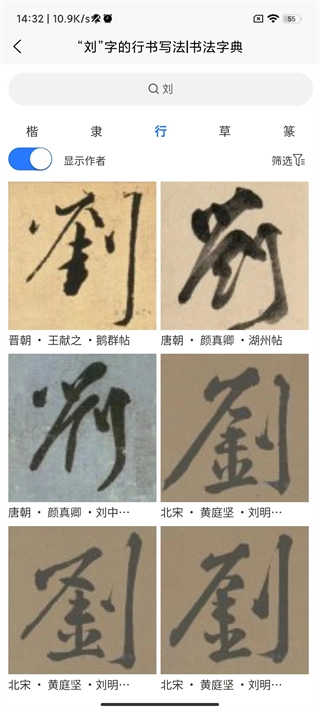 14:32 | 10.9K/s
55
"刘"字的行书写法|书法字典
刘
楷 隶 行 草 篆
显示作者 筛选
劉 劉
晋朝 · 王献之 · 鹅群帖 唐朝 · 颜真卿 · 湖州帖
劉 劉
唐朝 · 颜真卿 · 刘中… 北宋 · 黄庭坚 · 刘明…
劉 劉
北宋 · 黄庭坚 · 刘明… 北宋 · 黄庭坚 · 刘明…